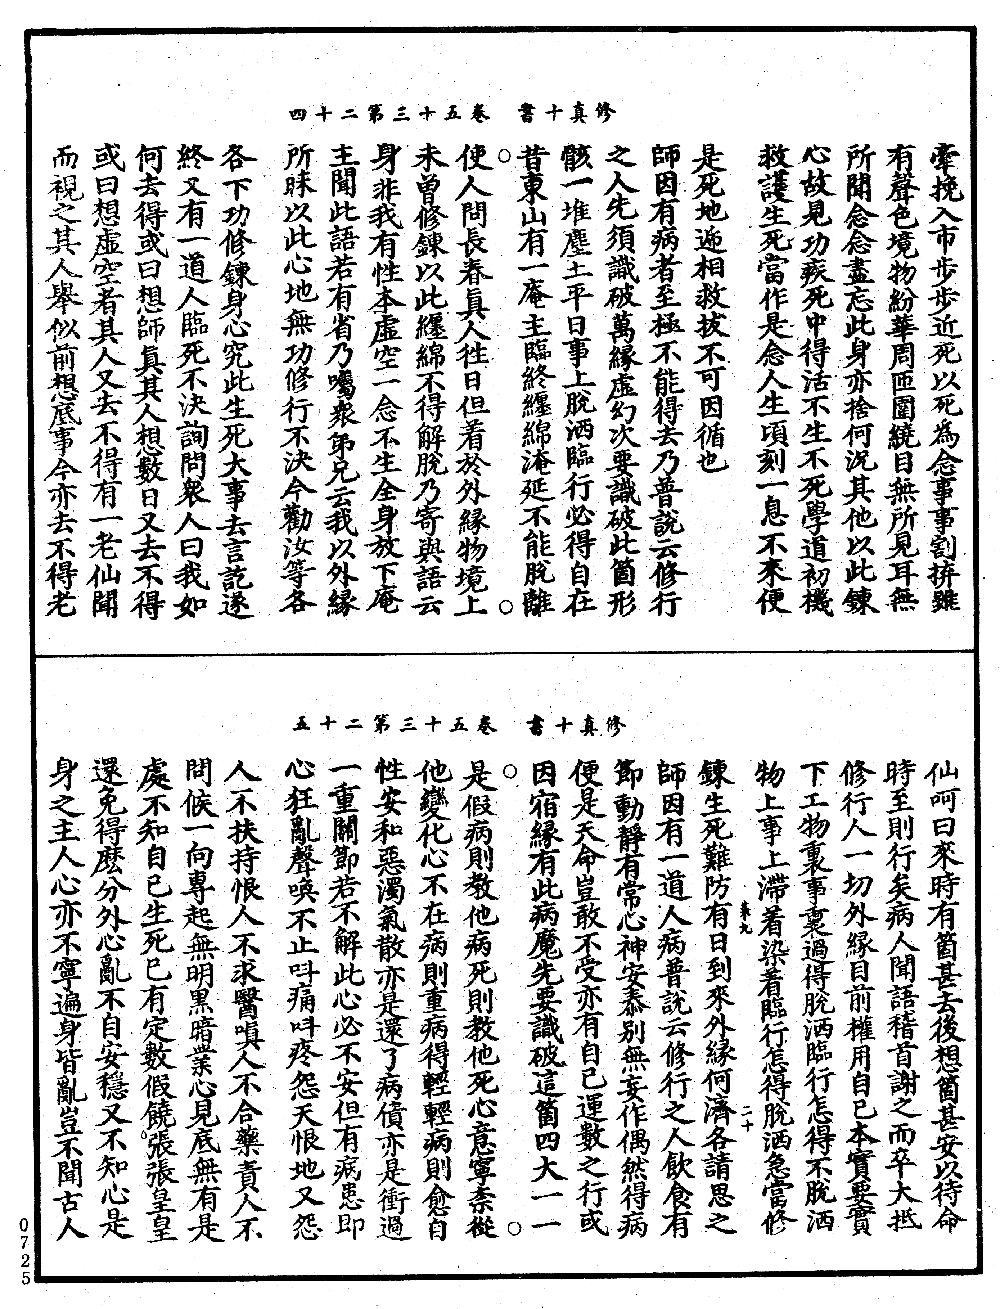 修真十書　卷五十三第二十四
牽挽入市步步近死以死為念事事割捹雖
有聲色境物紛華周匝圍繞目無所見耳無
所聞念念盡忘此身亦捨何況其他以此鍊
心故見功疾死中得活不生不死學道初機
救護生死當作是念人生頃刻一息不來便
是死地遞相救拔不可因循也
師因有病者至極不能得去乃普說云修行
之人先須識破萬緣虛幻次要識破此箇形
骸一堆塵土平日事上脫洒臨行必得自在
昔東山有一庵主臨終纏綿淹延不能脫離
使人問長春真人徃日但着於外緣物境上
未曾修鍊以此纏綿不得解脫乃寄與語云
身非我有性本虛空一念不生全身放下庵
主聞此語若有省乃囑衆弟兄云我以外緣
所昧以此心地無功修行不決今勸汝等各
各下功修鍊身心究此生死大事去言訖遂
終又有一道人臨死不決詢問衆人曰我如
何去得或曰想師真其人想數日又去不得
或曰想虛空者其人又去不得有一老仙聞
而視之其人舉似前想底事今亦去不得老
修真十書　卷五十三第二十五
仙呵曰來時有箇甚去後想箇甚安以待命
時至則行矣病人聞語稽首謝之而卒大抵
修行人一切外緣目前權用自己本實要實
下工物裏事裏過得脫洒臨行怎得不脫洒
物上事上滯着染着臨行怎得脫洒急當修
鍊生死難防有日到來外緣何濟各請思之
師因有一道人病普說云修行之人飲食有
節動靜有常心神安泰別無妄作偶然得病
便是天命豈敢不受亦有自己運數之行或
因宿緣有此病魔先要識破這箇四大一一
是假病則教他病死則教他死心意寧柰從
他變化心不在病則重病得輕輕病則愈自
性安和惡濁氣散亦是還了病債亦是衝過
一重關節若不解此心必不安但有病患即
心狂亂聲喚不止呌痛呌疼怨天恨地又怨
人不扶持恨人不求醫嗔人不合藥責人不
問候一向專起無明黑暗業心見底無有是
處不知自己生死已有定數假饒張張皇皇
還免得麽分外心亂不自安穩又不知心是
身之主人心亦不寧遍身皆亂豈不聞古人
二十
0725